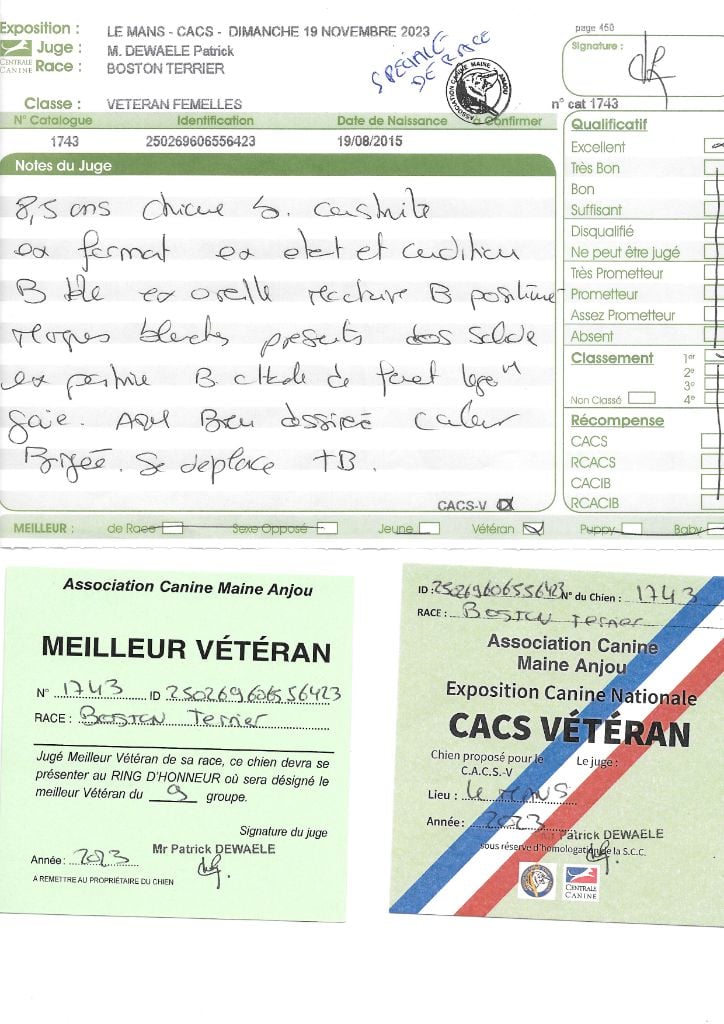 Exposition : LE MANS - CACS - DIMANCHE 19 NOVEMBRE 2023
Juge : M. DEWAELE Patrick
Race : BOSTON TERRIER
CENTRALE CANINE
SPÉCIALE DE RACE
ASSOCIATION CANINE MAINE ANJOU
page 450
Signature :
Classe : VETERAN FEMELLES
n° cat 1743
N° Catalogue Identification Date de Naissance à Confirmer
1743 250269606556423 19/08/2015
Notes du Juge
8,5 ans
ex format ex etat et condition
B tête ex oreille B
blanches presents
ex poitrine B attache de fouet
gaie. couleur
Bringée. Se deplace TB.
CACS-V
Qualificatif
Excellent
Très Bon
Bon
Suffisant
Disqualifié
Ne peut être jugé
Très Prometteur
Prometteur
Assez Prometteur
Absent
Classement 1er
2e
3e
Non Classé 4e
Récompense
CACS
RCACS
CACIB
RCACIB
MEILLEUR : de Race Sexe Opposé Jeune Vétéran Puppy Baby
Association Canine Maine Anjou
MEILLEUR VÉTÉRAN
N° 1743 ID 250269606556423
RACE : BOSTON Terrier
Jugé Meilleur Vétéran de sa race, ce chien devra se
présenter au RING D'HONNEUR où sera désigné le
meilleur Vétéran du 9 groupe.
Signature du juge
Mr Patrick DEWAELE
Année : 2023
A REMETTRE AU PROPRIÉTAIRE DU CHIEN
ID : 250269606556423 N° du Chien : 1743
RACE : BOSTON Terrier
Association Canine
Maine Anjou
Exposition Canine Nationale
CACS VÉTÉRAN
Chien proposé pour le Le juge :
C.A.C.S.-V
Lieu : Le MANS
Année : 2023
Mr Patrick DEWAELE
sous réserve d'homologation de la S.C.C.
CENTRALE
CANINE